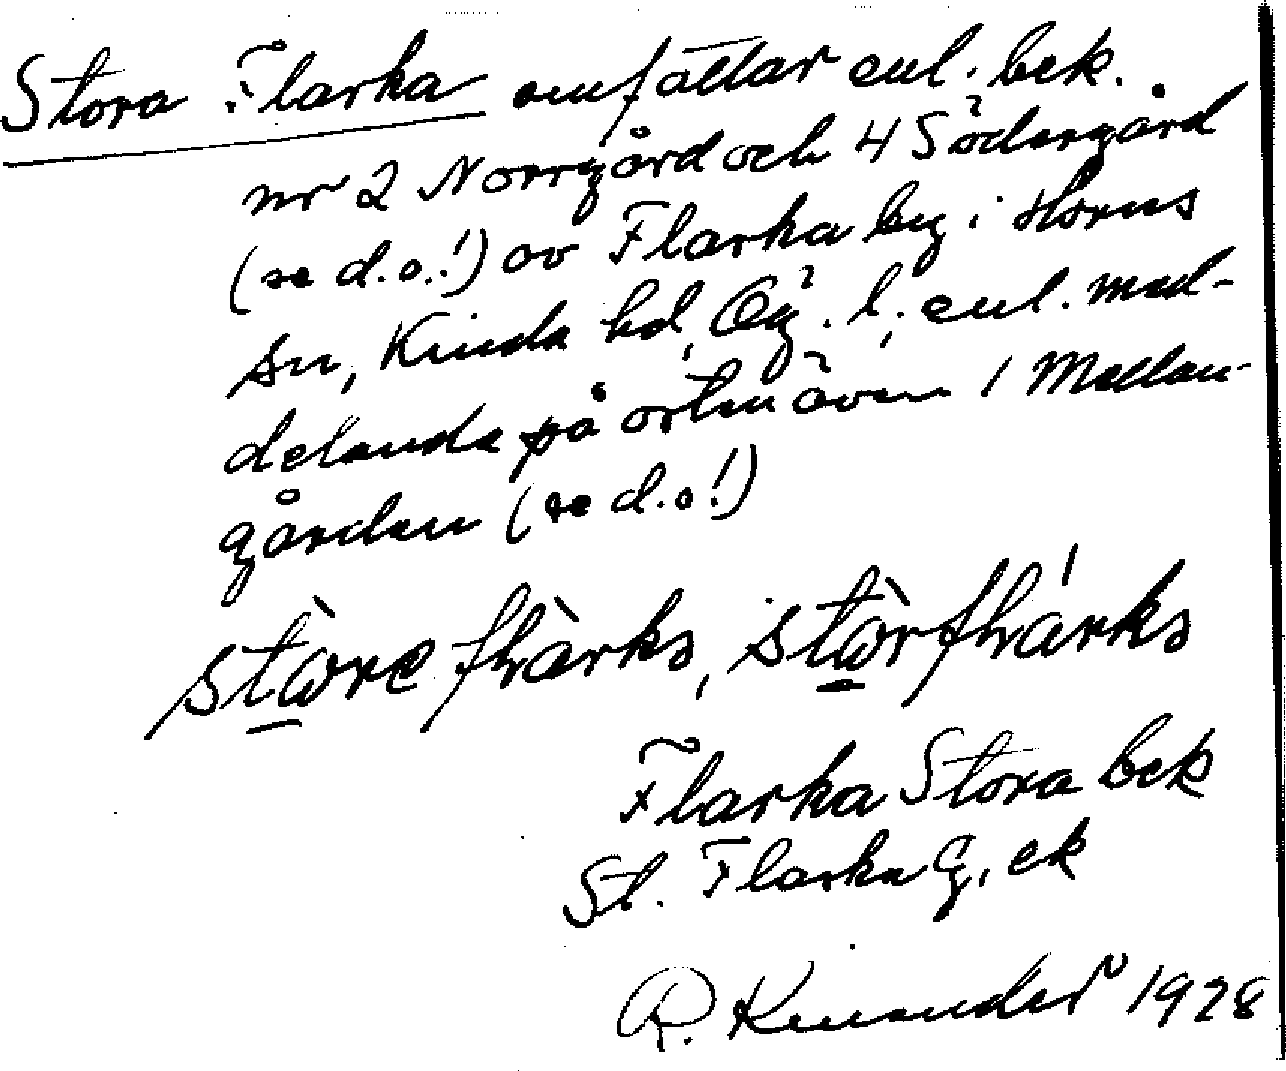 Stora Flarka omfattar enl. bek.
nr 2 Norrgård och 4 Södergård
(se d.o.!) av Flarka by i Horns
sn, Kinda hd, Ög. l; enl. med-
delande på orten även 1 Mellan-
gården (se d.o.!)
Flarka Stora bek
St. Flarka G, ek
R. Kinander 1928